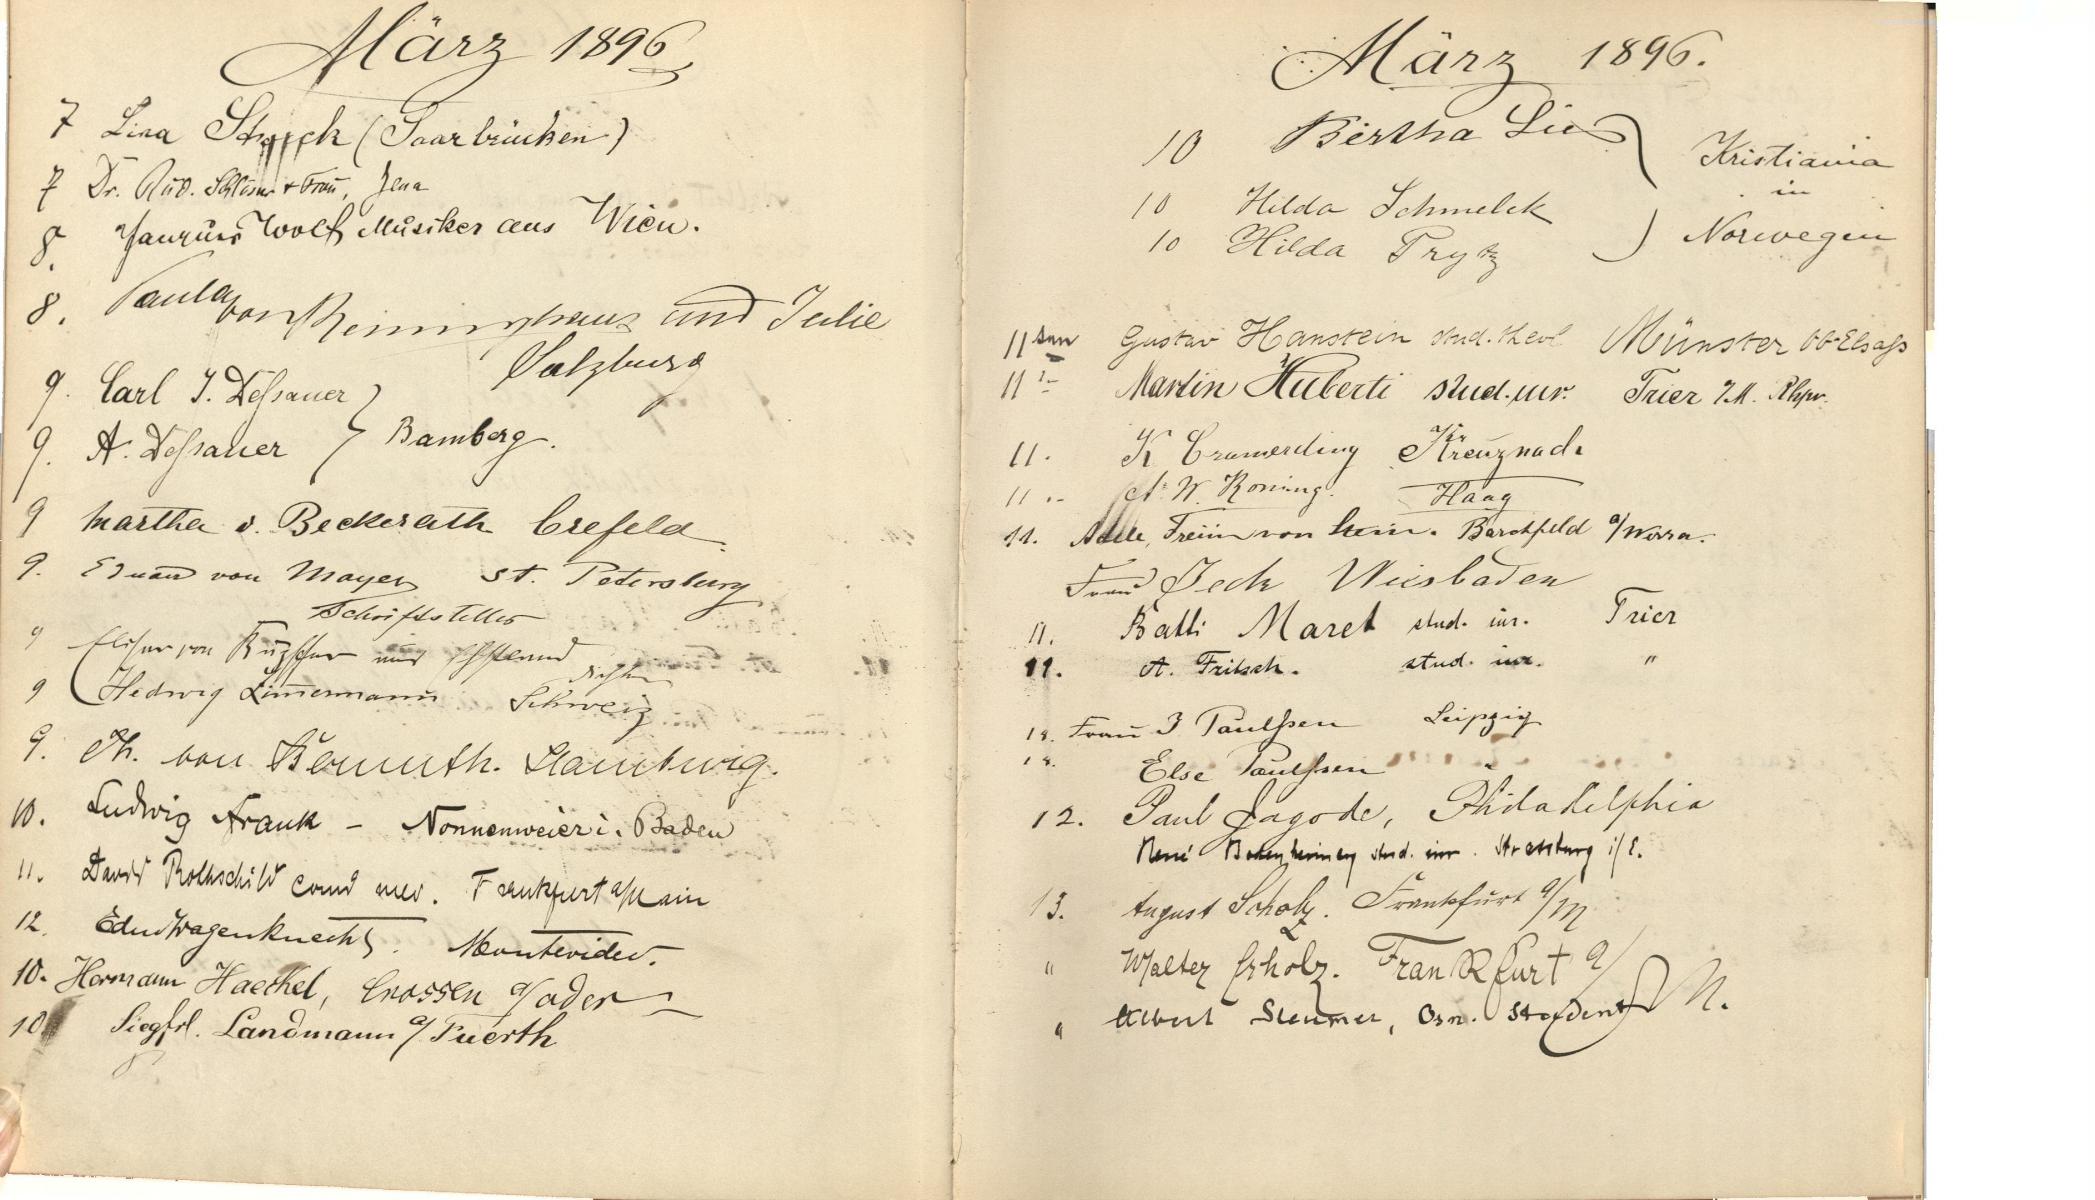 März 1896
7 Lina Struck (Saarbrücken)
7 Dr. Rud. Schlösser + Frau, Jena
8. Wolf Musiker aus Wien.
8. Paula von Reininghaus und Julie
Salzburg
9. Carl J. Deßauer
9. A. Deßauer } Bamberg.
9 Martha v. Beckerath Crefeld.
9. Eduard von Mayer St. Petersburg
Schriftsteller
9 Elisar von Kupffer
9 Hedwig Zimmermann Schweiz
9. Th. von Bermuth. Hamburg.
10. Ludwig Frank – Nonnenweier i. Baden
11. David Rothschild cand med. Frankfurt a/Main
12. Edu Wagenknecht. Montevideo.
10. Hermann Haeckel, Crossen a/Oder
10 Siegfr. Landmann a/ Fuerth
März 1896.
10 Bertha Lie } Kristiania
in
10 Hilda Schmelck
10 Hilda Prytz ) Norwegen
11 Gustav Hanstein stud. theol Münster Ob-Elsaß
11 Martin Huberti stud. iur. Trier
11. K Cramerding Kreuznach
11 W. Koning. Haag
11. Adele, Freiin von Stein. Barchfeld a/Werra.
Frau Jeck Wiesbaden
11. Batti Maret stud. iur. Trier
11. A. Fritsch. stud. iur. "
12. Frau J Paulssen Leipzig
12. Else Paulssen "
12. Paul Jagode, Philadelphia
René stud. iur. Strassburg i/E.
13. August Scholz. Frankfurt a/M
" Walter Scholz. Frankfurt a/M.
" Albert Student